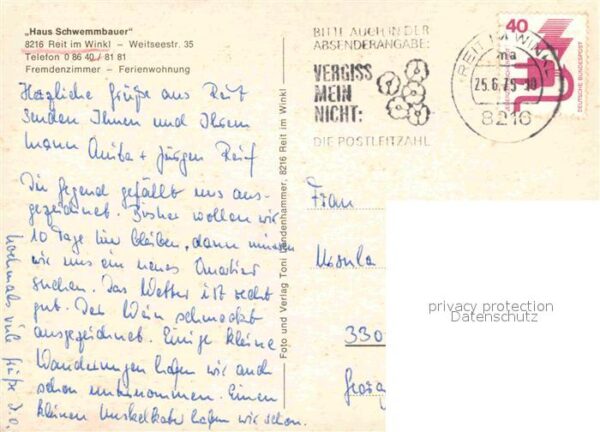 „Haus Schwemmbauer"
8216 Reit im Winkl – Weitseestr. 35
Telefon 0 86 40 / 81 81
Fremdenzimmer – Ferienwohnung
Herzliche Grüße aus Reit
senden Ihnen und Ihrem
Mann Anita + Jürgen
Die Gegend gefällt uns aus-
gezeichnet. Bisher wollen wir
10 Tage hier bleiben, dann müssen
wir uns ein neues Quartier
suchen. Das Wetter ist recht
gut. Der Wein schmeckt
ausgezeichnet. Einige kleine
Wanderungen haben wir auch
schon unternommen. Einen
kleinen Muskelkater haben wir schon.
nochmals viele Grüße d.o.
Foto und Verlag Toni Lindenhammer, 8216 Reit im Winkl
BITTE AUCH IN DER
ABSENDERANGABE:
VERGISS
MEIN
NICHT:
DIE POSTLEITZAHL
REIT IM WINKL 1
ma
25.6.75-10
8216
40
DEUTSCHE BUNDESPOST
Frau
Ursula
330
Georg
privacy protection
Datenschutz